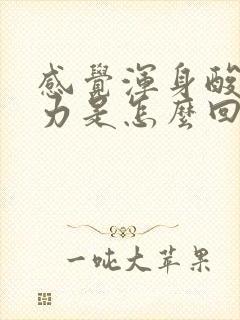 感覺渾身酸
力是怎麼回
一吨大苹果